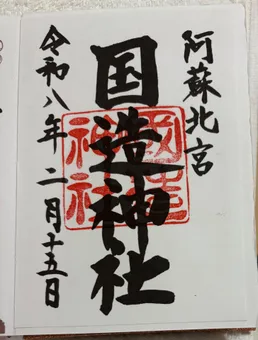 阿蘇北宮
国造神社
令和八年二月十五日
国造神社